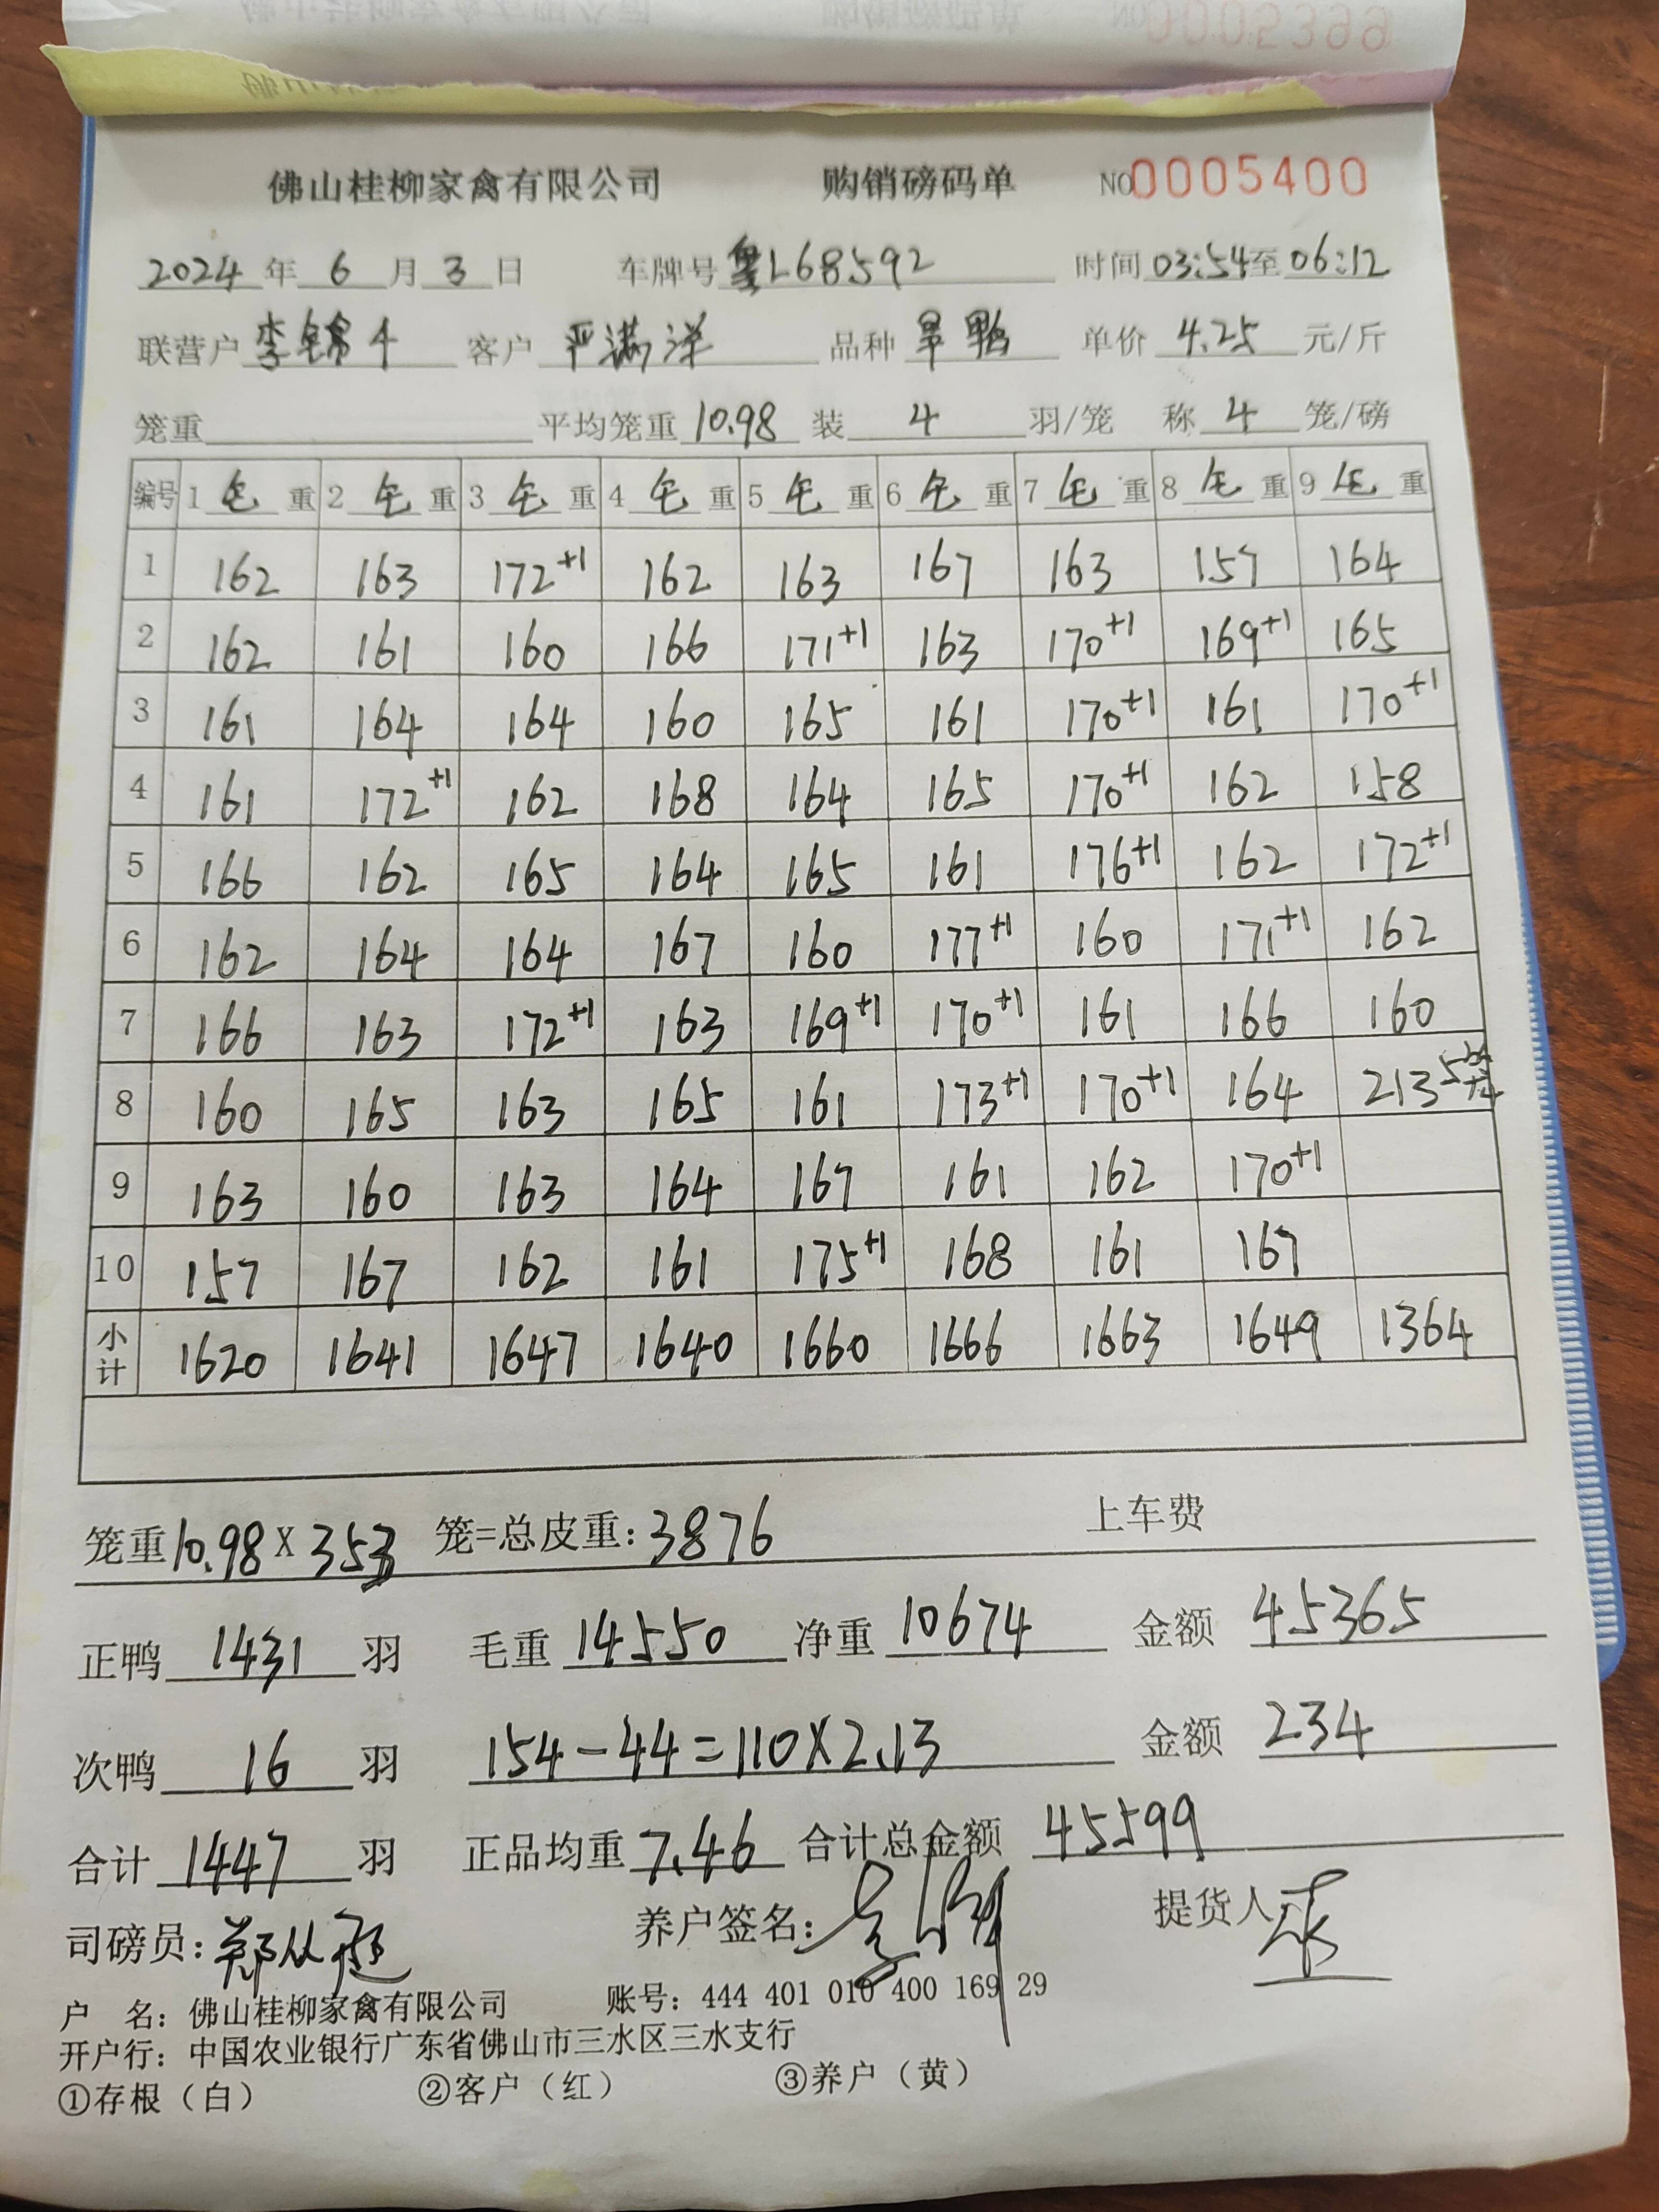 佛山桂柳家禽有限公司 购销磅码单 NO0005400
2024年6月3日 车牌号粤L68592 时间03:54至06:12
联营户李锦 客户严满洋 品种旱鸭 单价4.25元/斤
笼重 平均笼重10.98 装4羽/笼 称4笼/磅
编号 1毛重 2毛重 3毛重 4毛重 5毛重 6毛重 7毛重 8毛重 9毛重
1 162 163 172+1 162 163 167 163 157 164
2 162 161 160 166 171+1 163 170+1 169+1 165
3 161 164 164 160 165 161 170+1 161 170+1
4 161 172+1 162 168 164 165 170+1 162 158
5 166 162 165 164 165 161 176+1 162 172+1
6 162 164 164 167 160 177+1 160 171+1 162
7 166 163 172+1 163 169+1 170+1 161 166 160
8 160 165 163 165 161 173+1 170+1 164 213 5笼
9 163 160 163 164 167 161 162 170+1
10 157 167 162 161 175+1 168 161 167
小计 1620 1641 1647 1640 1660 1666 1663 1649 1364
笼重10.98X353 笼=总皮重:3876 上车费
正鸭1431羽 毛重14550 净重10674 金额45365
次鸭16羽 154-44=110X2.13 金额234
合计1447羽 正品均重7.46 合计总金额45599
司磅员: 养户签名: 提货人
户 名: 佛山桂柳家禽有限公司 账号: 444 401 010 400 169 29
开户行: 中国农业银行广东省佛山市三水区三水支行
①存根（白） ②客户（红） ③养户（黄）